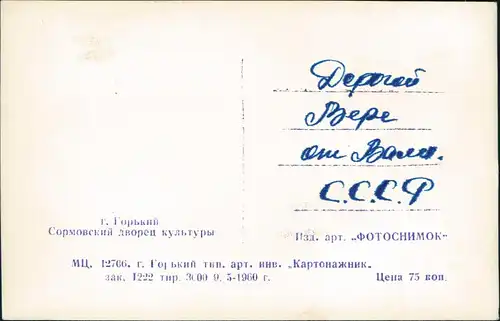 Дорогой
Вере
от Вали.
С.С.С.Р
г. Горький
Сормовский дворец культуры
Изд. арт. „ФОТОСНИМОК"
МЦ. 12766. г. Горький тип. арт. инв. „Картонажник„
зак. 1222 тир. 3000 9. 5-1960 г.
Цена 75 коп.